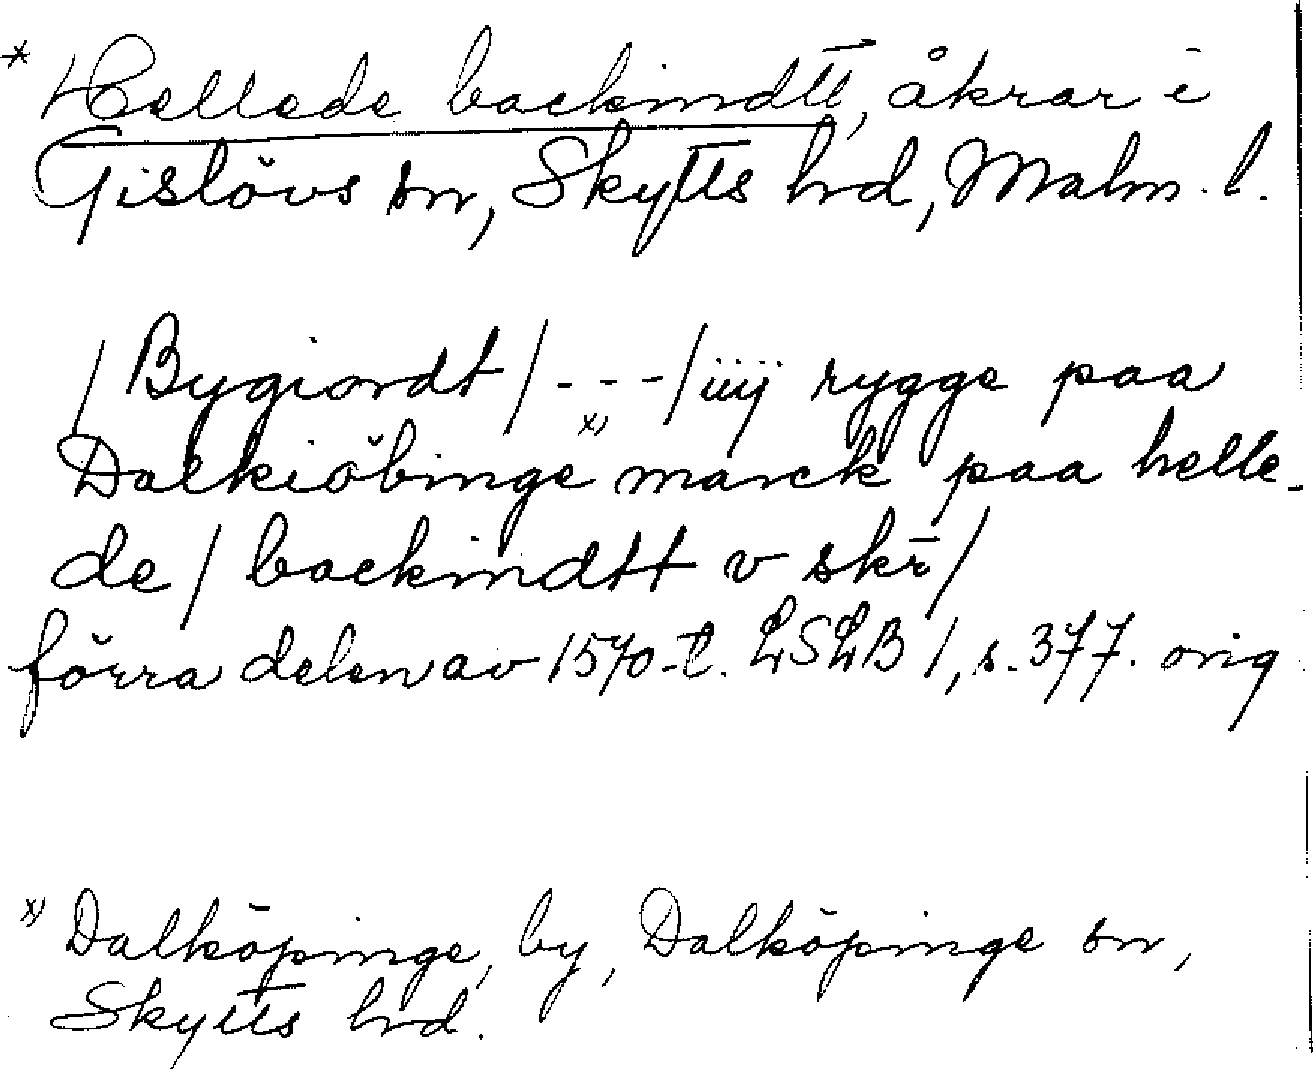 * Hellede backindtt, åkrar i
Gislövs sn, Skytts hrd, Malm. l.
/Bygiordt/ - - - /iiij rygge paa
Dalkiöbinge x) marck paa helle-
de / backindtt v skr/
förra delen av 1570-t. LSLB 1, s. 377. orig
x) Dalköpinge, by, Dalköpinge sn,
Skytts hrd.